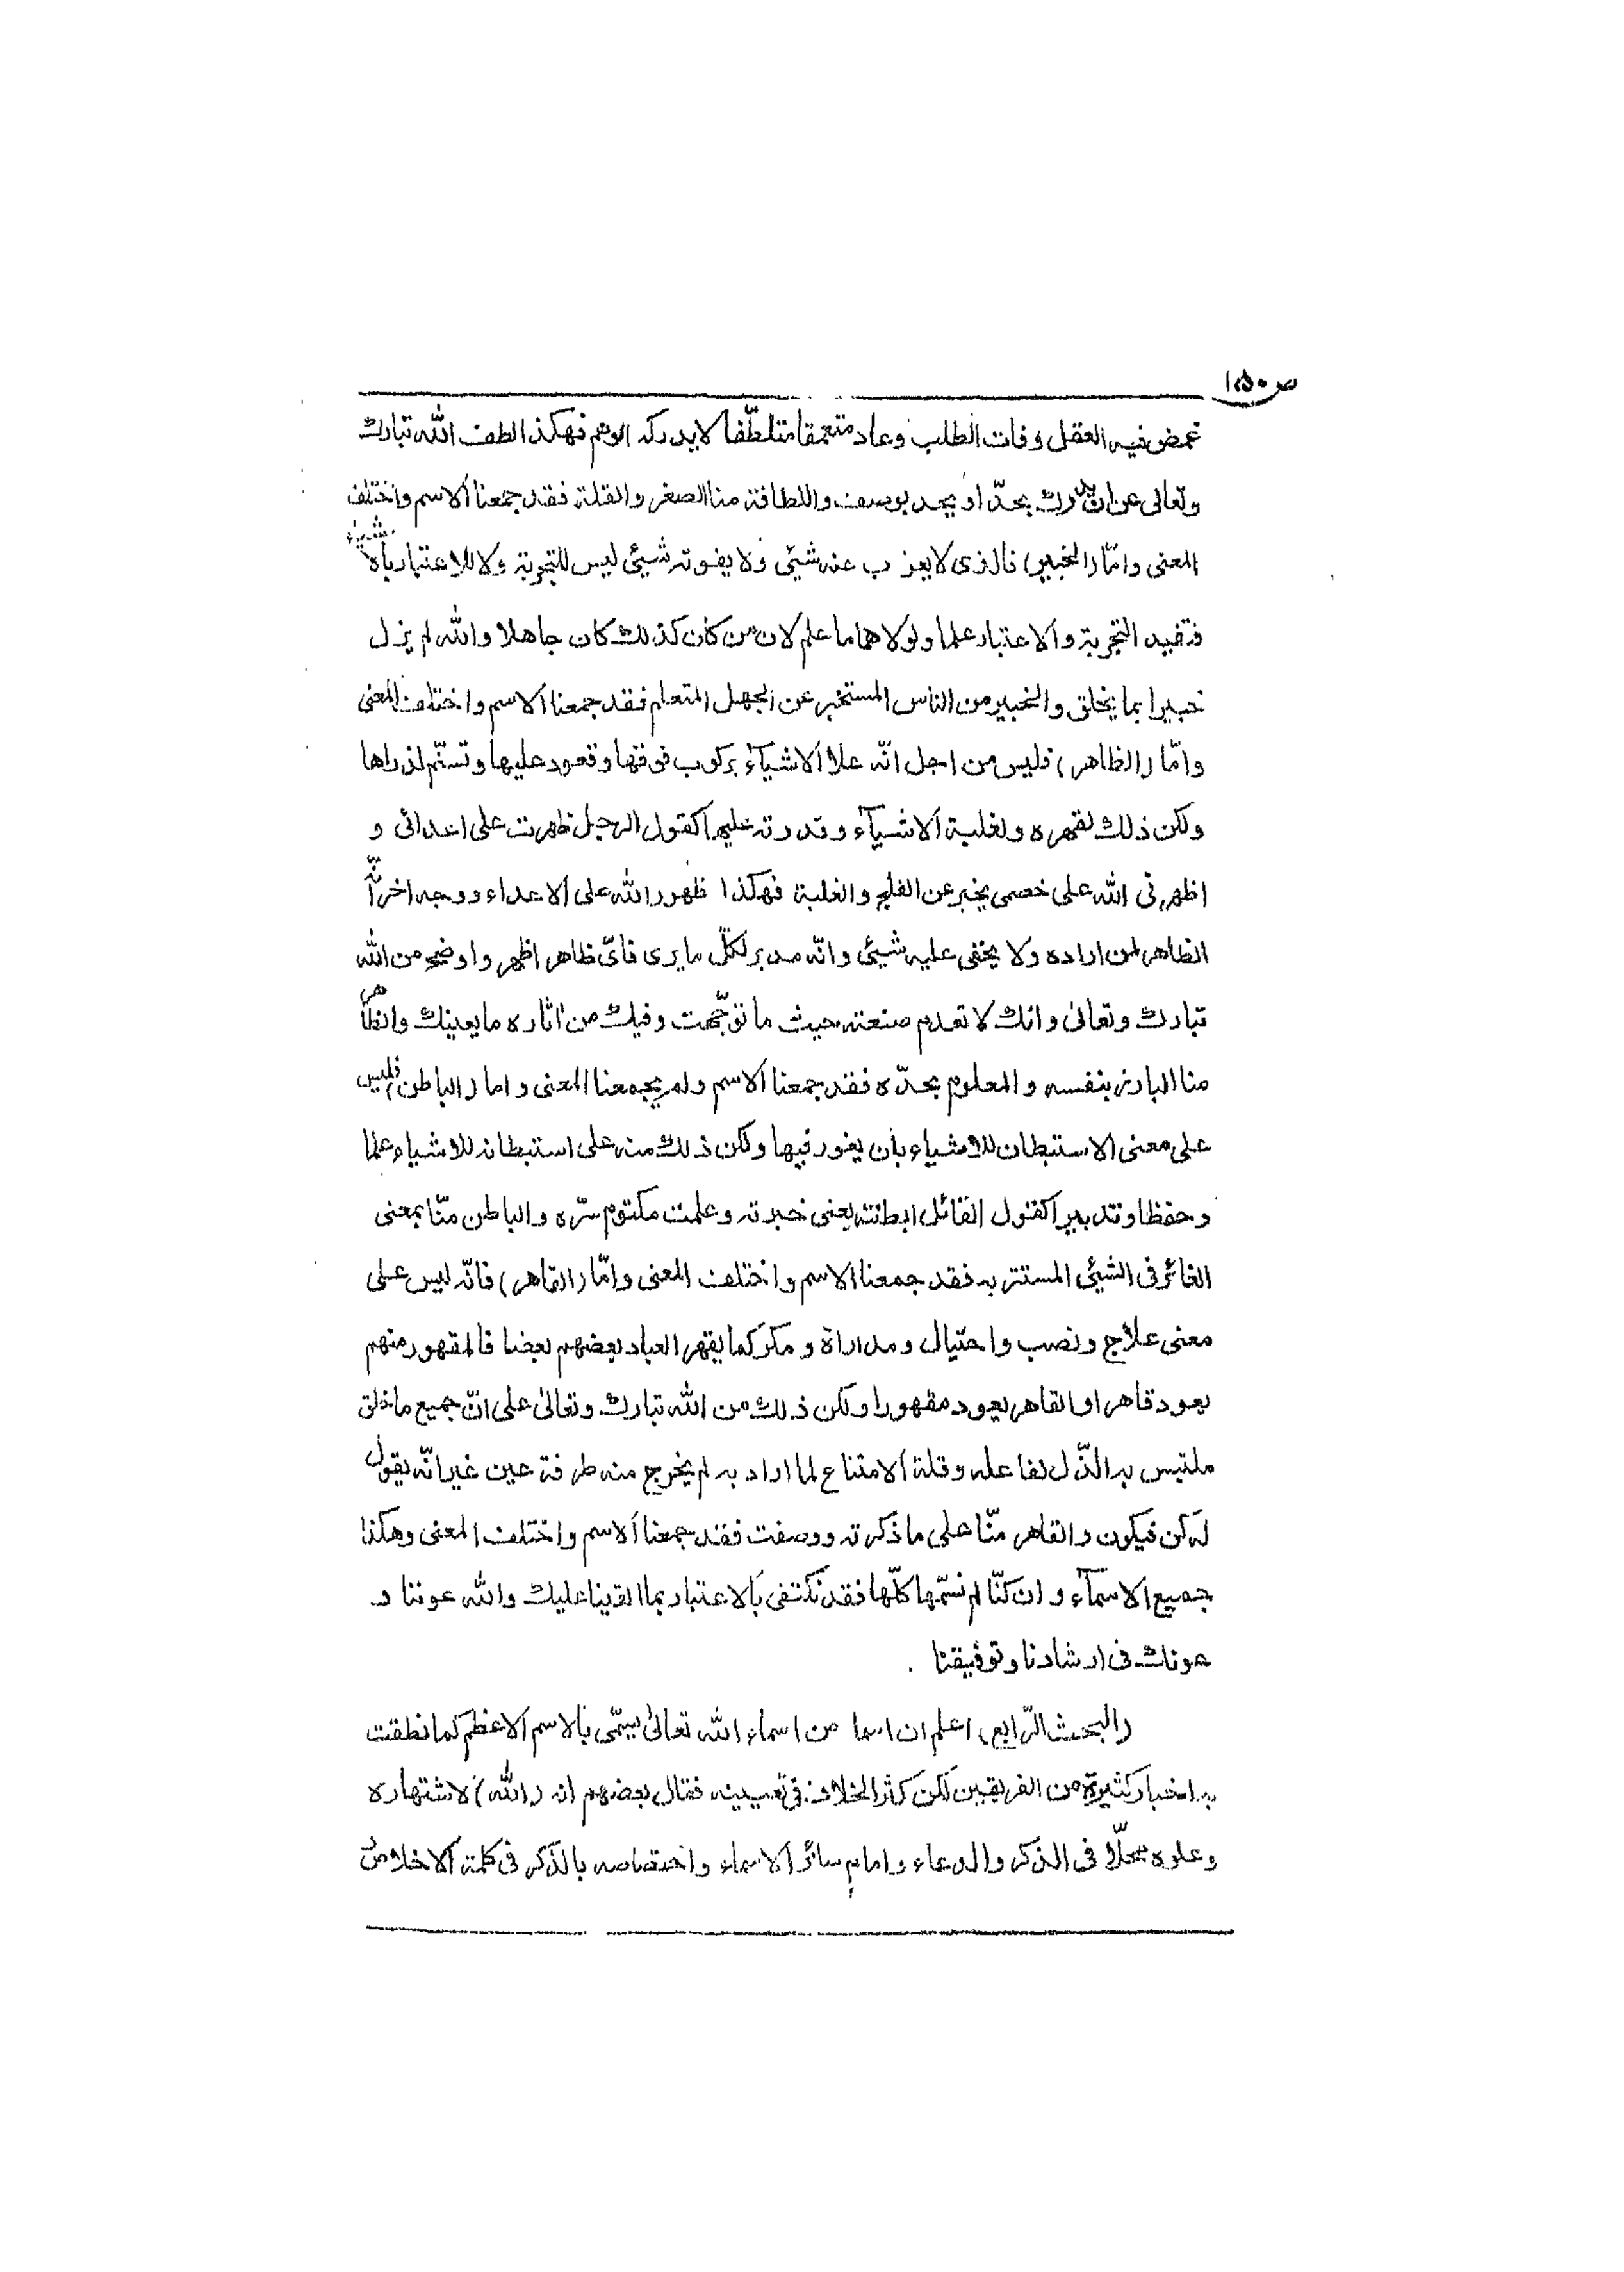 ص ١٥٠
غمض فيه العقل وفات الطلب وعاد متعمقا متلطّفا لا يدركه الوهم فهكذا لطف الله تبارك
وتعالى عن ان يدرك بحدّ او يحد بوصف واللطافة منا الصغر والقلة فقد جمعنا الاسم واختلف
المعنى وامّا (الخبير) فالذى لا يعزب عنه شيئ ولا يفوته شيئ ليس للتجربة ولا للاعتبار بالاشياء
فتفيد التجربة والاعتبار علما ولولاهما ما علم لان من كان كذلك كان جاهلا والله لم يزل
خبيرا بما يخلق والخبير من الناس المستخبر عن الجهل المتعلم فقد جمعنا الاسم واختلف المعنى
وامّا (الظاهر) فليس من اجل انّه علا الاشيآء بركوب فوقها وقعود عليها وتسنّم لذراها
ولكن ذلك لقهره ولغلبة الاشيآء وقدرته عليها كقول الرجل ظهرت على اعدائى و
اظهرنى الله على خصمى يخبر عن الفلج والغلبة فهكذا ظهور الله على الاعداء ووجه اخر انّه
الظاهر لمن اراده ولا يخفى عليه شيئ وانّه مدبر لكلّ ما يرى فاىّ ظاهر اظهر واوضح من الله
تبارك وتعالى وانك لا تعدم صنعته حيث ما توجّهت وفيك من اثاره ما يعينك والظاهر
منا البارز بنفسه والمعلوم بحدّه فقد جمعنا الاسم ولم يجمعنا المعنى واما (الباطن) فليس
على معنى الاستبطان للاشياء بان يغور فيها ولكن ذلك منه على استبطانه للاشياء علما
وحفظا وتدبيرا كقول القائل ابطنته يعنى خبرته وعلمت مكتوم سرّه والباطن منّا بمعنى
الغائر فى الشيئ المستتر به فقد جمعنا الاسم واختلف المعنى وامّا (القاهر) فانّه ليس على
معنى علاج ونصب واحتيال ومداراة ومكر كما يقهر العباد بعضهم بعضا فالمقهور منهم
يعود قاهرا والقاهر يعود مقهورا ولكن ذلك من الله تبارك وتعالى على انّ جميع ما خلق
ملتبس به الذّل لفاعله وقلة الامتناع لما اراد به لم يخرج منه طرفة عين غير انّه يقول
له كن فيكون والقاهر منّا على ما ذكرته ووصفت فقد جمعنا الاسم واختلف المعنى وهكذا
جميع الاسمآء وان كنّا لم نسمّها كلّها فقد نكتفى بالاعتبار بما القينا عليك والله عوننا و
عونك فى ارشادنا وتوفيقنا .
(البحث الرّابع) اعلم ان اسما من اسماء الله تعالى يسمّى بالاسم الاعظم كما نطقت
به اخبار كثيرة من الفريقين لكن كثر الخلاف فى تعيينه فقال بعضهم انه (الله) لاشتهاره
وعلوه محلّا فى الذكر والدعاء وامام سائر الاسماء واختصاصه بالذّكر فى كلمة الاخلاص